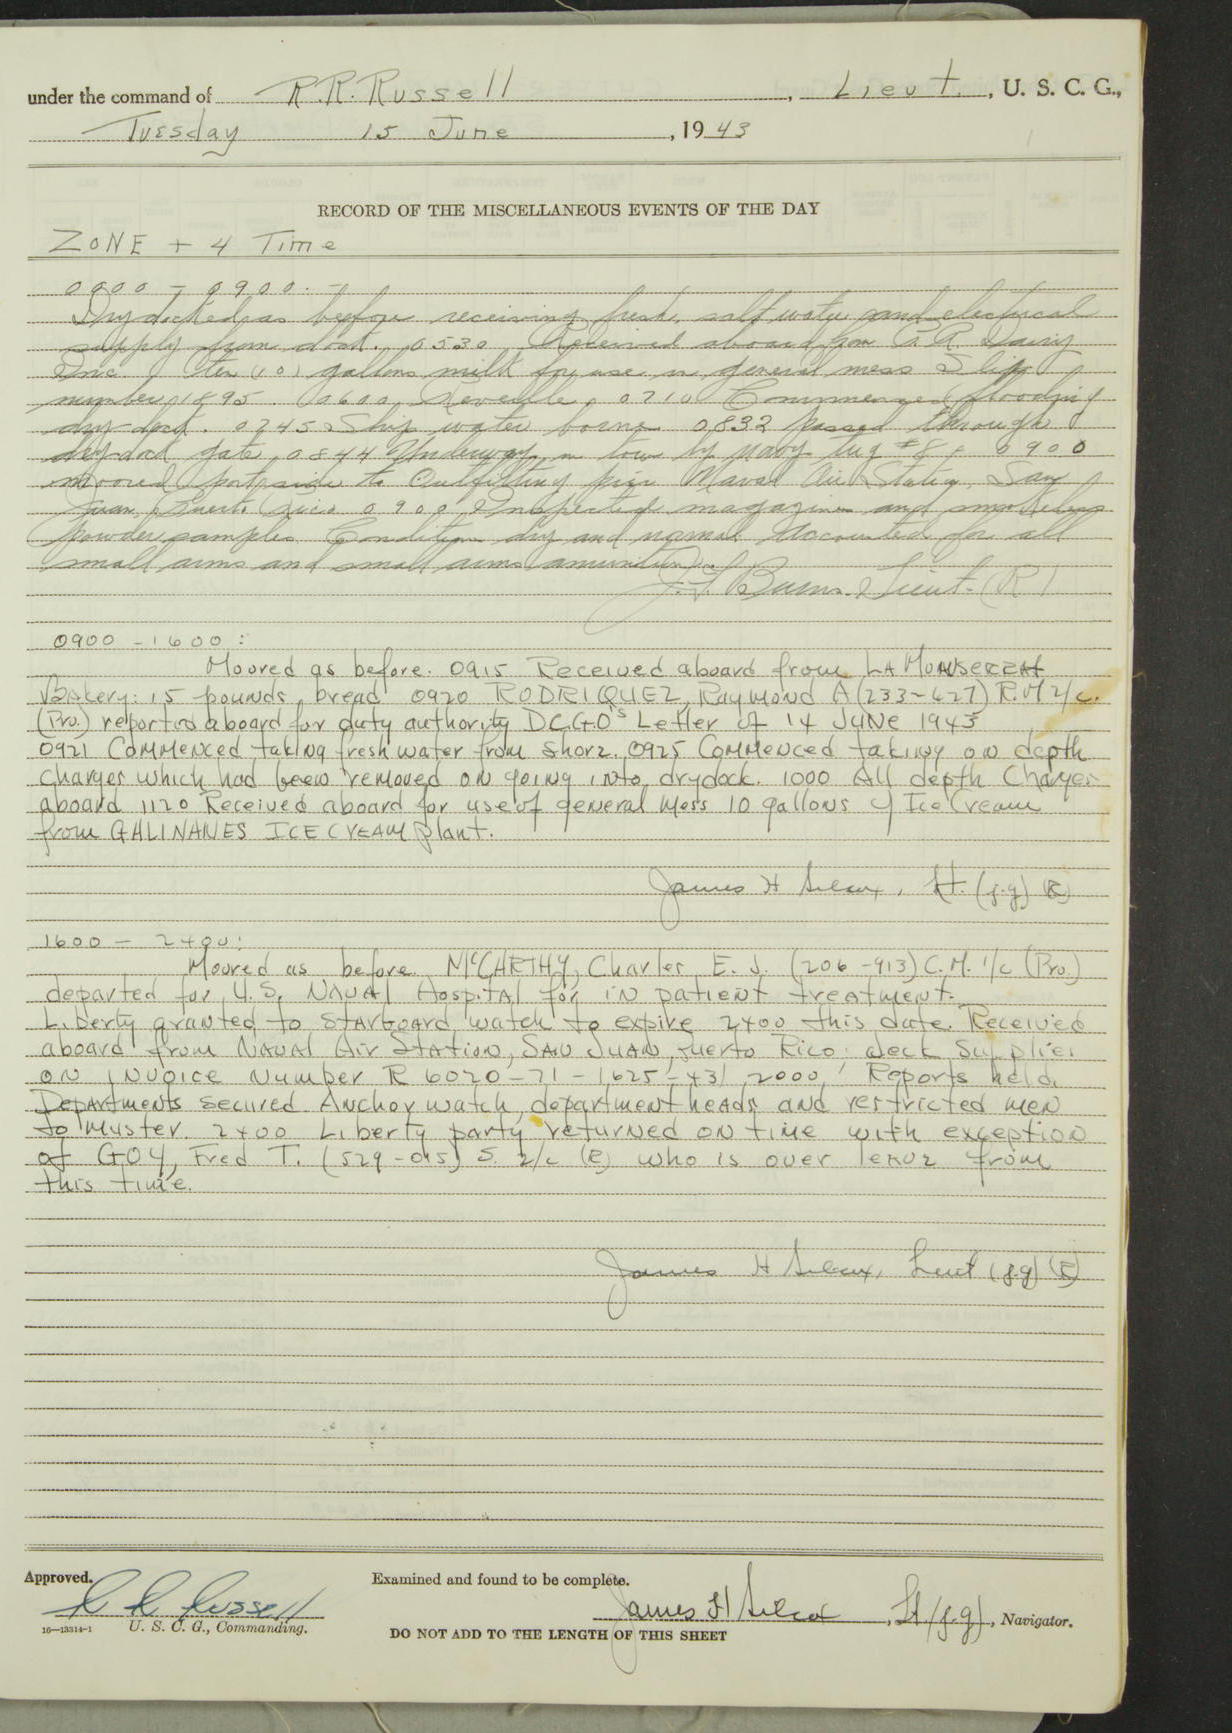 under the command of R.R. Russell, Lieut., U. S. C. G.,
Tuesday 15 June, 1943
RECORD OF THE MISCELLANEOUS EVENTS OF THE DAY
ZONE + 4 Time
0000 - 0900: -
Drydocked as before receiving fresh, salt water and electrical
supply from dock. 0530 Received aboard from Dairy
Inc, ten (10) gallons milk for use in general mess Slip
number 1895. 0600, Reveille, 0710 Commenced flooding
dry-dock. 0745 Ship water borne 0832 passed through
drydock gate, 0844 Underway, in tow by navy tug #8, 0900
moored port side to Outfitting pier Naval Air Station, San
Juan, Puerto Rico 0900, Inspected magazines and smokeless
powder samples. Condition dry and normal. Accounted for all
small arms and small arms amunition.
Lieut. (R)
0900 - 1600:
Moored as before. 0915 Received aboard from LA MONSERRAT
Bakery: 15 pounds bread 0920 RODRIQUEZ, Raymond A (233-627) R.M 2/c.
(Pro.) reported aboard for duty authority DCGO's Letter of 14 JUNE 1943
0921 Commenced taking fresh water from shore. 0925 Commenced taking on depth
charges which had been removed on going into drydock. 1000 All depth Charges
aboard 1120 Received aboard for use of general mess 10 gallons of Ice Cream
from GALINANES ICE CREAM plant.
James H Silcox, Lt. (j.g) (R)
1600 - 2400:
Moored as before. McCARTHY, Charles E. J. (206-913) C.M. 1/c (Pro.)
departed for U.S. Naval Hospital for in patient treatment.
Liberty granted to starboard watch to expire 2400 this date. Received
aboard from Naval Air Station, SAN JUAN, Puerto Rico: deck supplies
on invoice number R 6020-71-1625-43. 2000, Reports held.
Departments secured Anchor watch, department heads and restricted men
to muster. 2400 Liberty party returned on time with exception
of GOY, Fred T. (529-015) S. 2/c (R) who is over leave from
this time.
James H Silcox, Lieut (j.g) (R)
Approved.
R R Russell
U. S. C. G., Commanding.
16—13314-1
Examined and found to be complete.
James H Silcox, Lt (j.g), Navigator.
DO NOT ADD TO THE LENGTH OF THIS SHEET